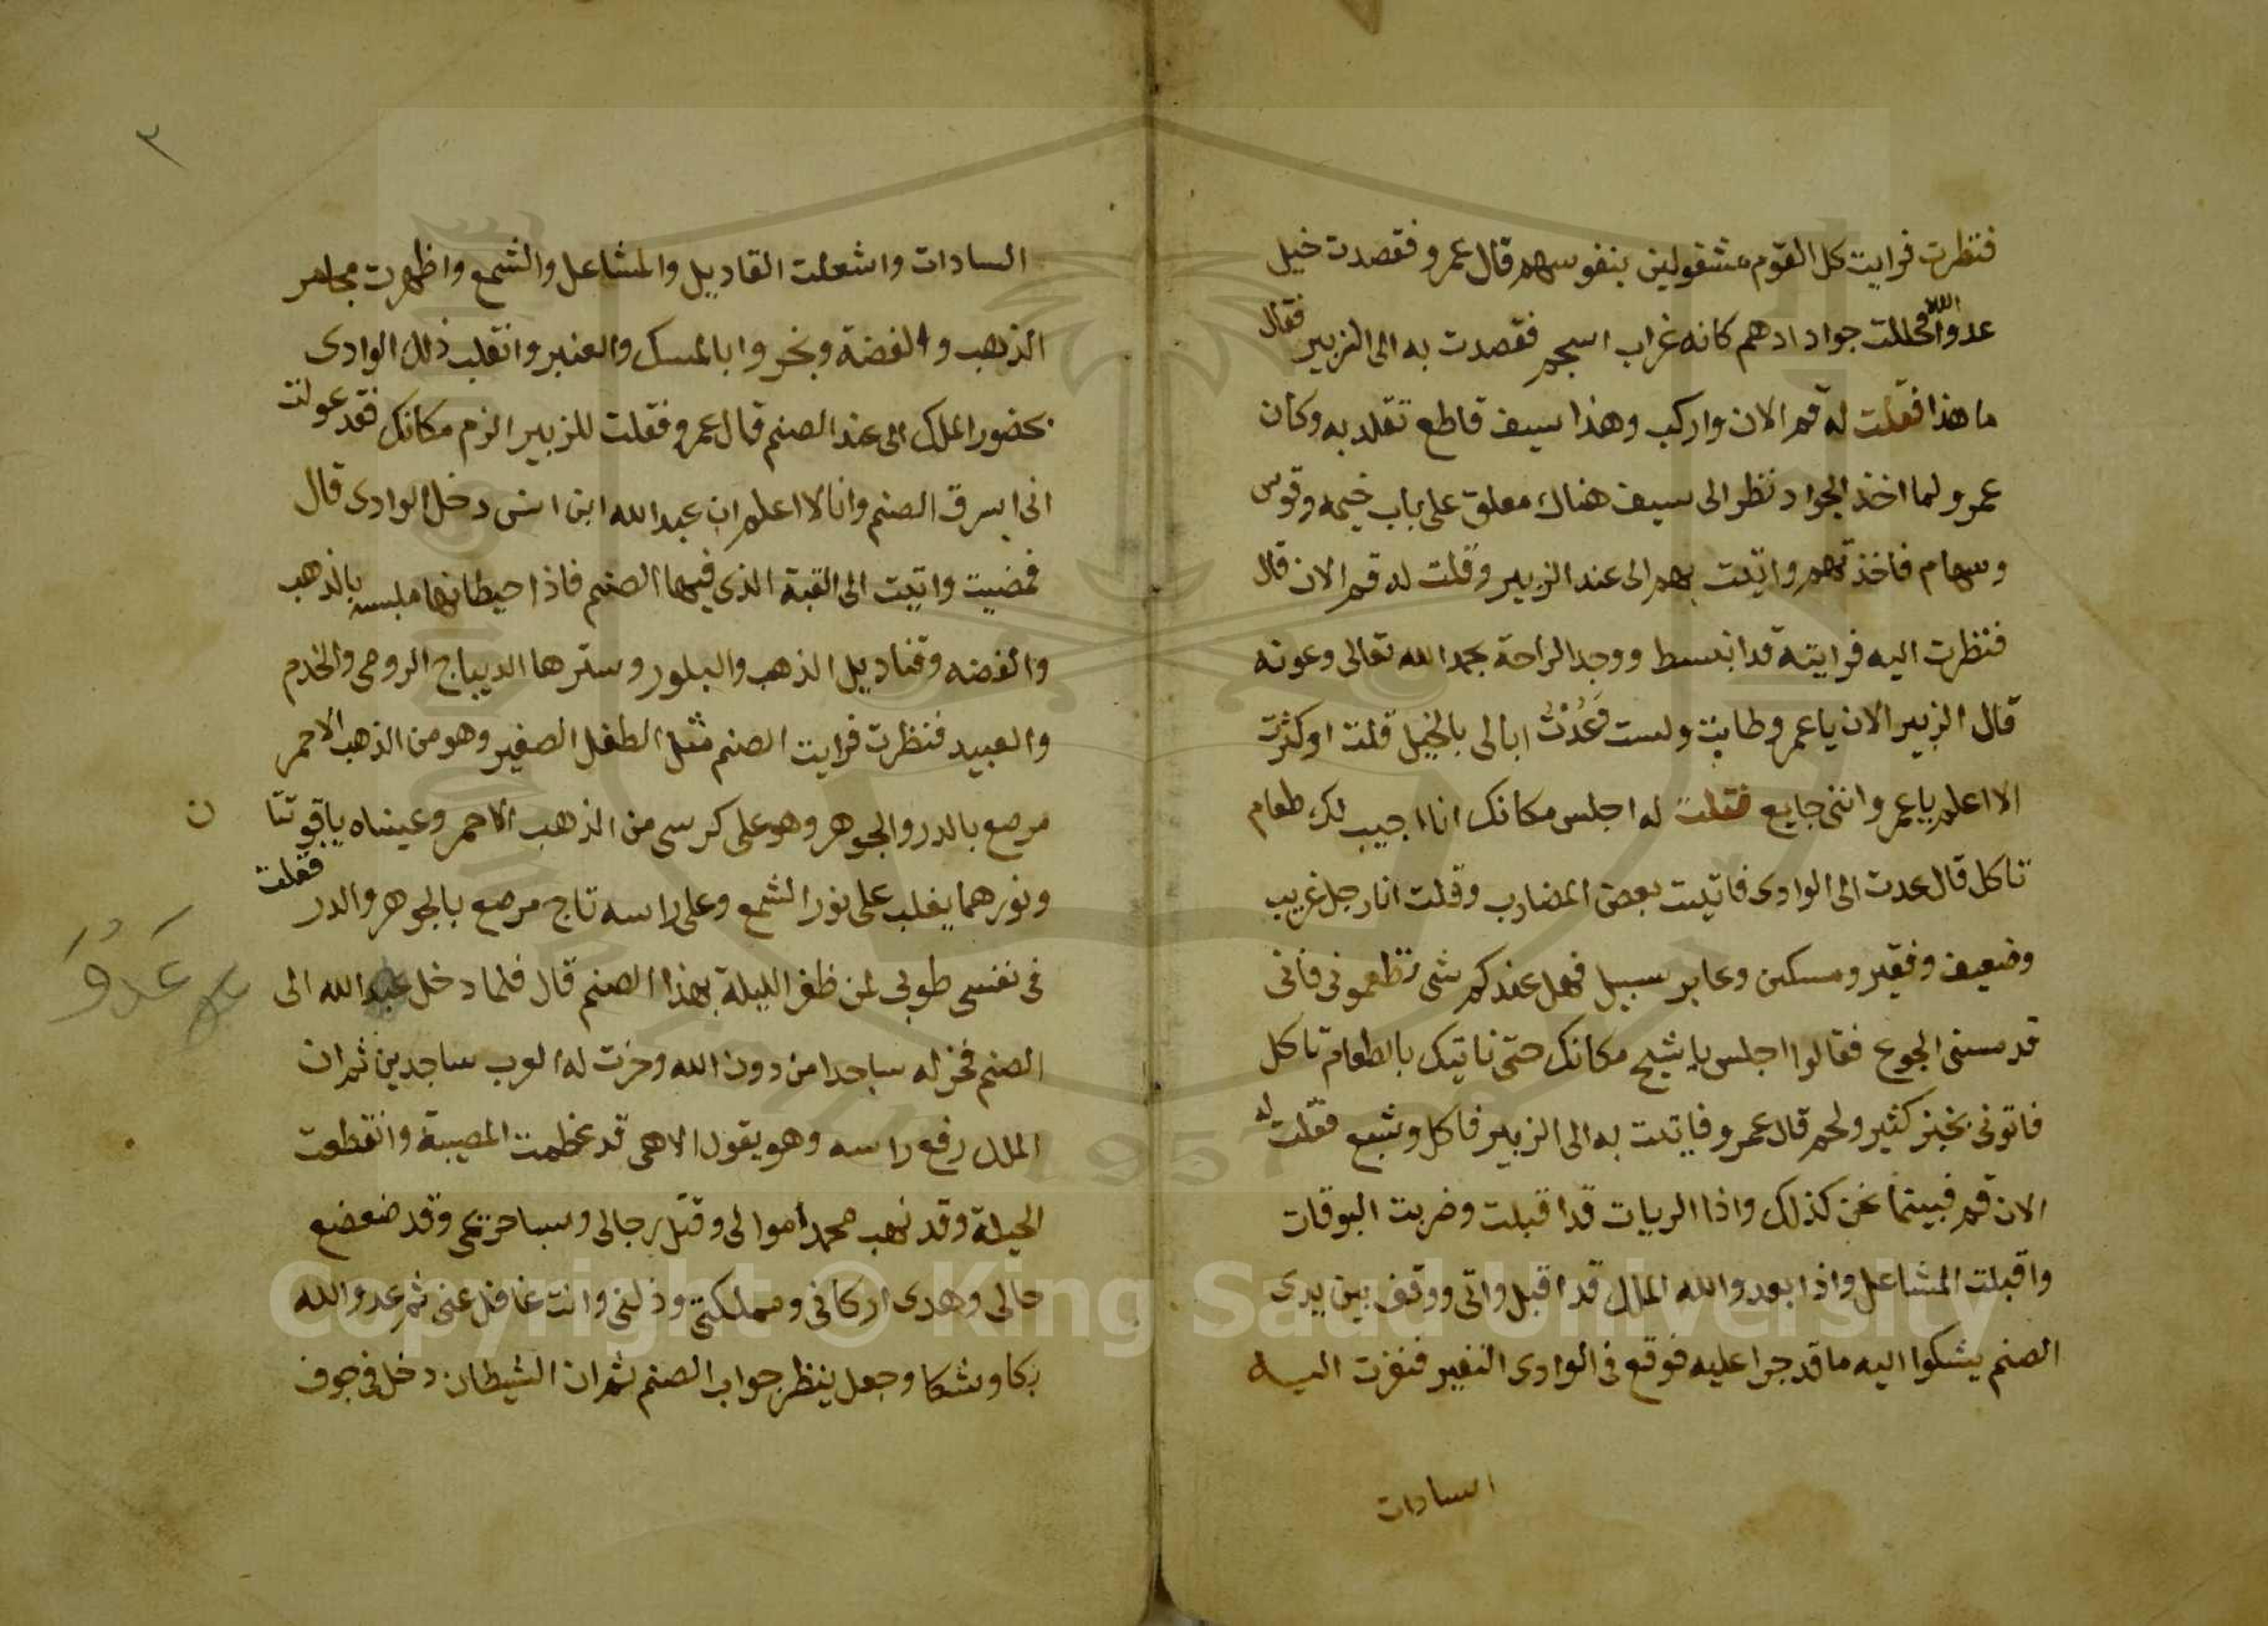 فنظرت فرايت كل القوم مشغولين بنفوسهم قال عمرو فقصدت خيل
عدوا الله فحللت جواد ادهم كانه غراب اسحم فقصدت به الى الزبير فقال
ما هذا فقلت له قم الان واركب وهذا سيف قاطع تقلد به وكان
عمرو لما اخذ الجواد نظر الى سيف هناك معلق على باب خيمه وقوس
وسهام فاخذتهم واتيت بهم الى عند الزبير وقلت له قم الان قال
فنظرت اليه فرايته قد انبسط ووجد الراحة بحمد الله تعالى وعونه
قال الزبير الان يا عمرو طابت ولست فَعُدْتُ ابالى بالخيل قلت او كثرت
الا اعلم يا عمرو اننى جايع فقلت له اجلس مكانك انا اجيب لك طعام
تاكل قال عدت الى الوادى فاتيت بعض المضارب وقلت انا رجل غريب
وضعيف وفقير ومسكين وعابر سبيل فهل عندكم شى تطعمونى فانى
قد مسنى الجوع فقالوا اجلس يا شيخ مكانك حتى ناتيك بالطعام تاكل
فاتونى بخبز كثير ولحم قال عمرو فاتيت به الى الزبير فاكل وشبع فقلت له
الان قم فبينما نحن كذلك واذا الريات قد اقبلت وضربت البوقات
واقبلت المشاعل واذا بعدو الله الملك قد اقبل واتى ووقف بين يدى
الصنم يشكوا اليه ما قد جرا عليه فوقع فى الوادى النفير فنفرت اليه
السادات
٣
السادات واشعلت القاديل والمشاعل والشمع واظهرت مجامر
الذهب والفضة وبخروا بالمسك والعنبر وانقلب ذلك الوادى
بحضور الملك الى عند الصنم قال عمرو فقلت للزبير الزم مكانك فقد عولت
انى اسرق الصنم وانا لا اعلم ان عبد الله ابن انس دخل الوادى قال
فمضيت واتيت الى القبة الذي فيها الصنم فاذا حيطانها ملبسه بالذهب
والفضه وقناديل الذهب والبلور وسترها الديباج الرومى والخدم
والعبيد فنظرت فرايت الصنم مثل الطفل الصغير وهو من الذهب الاحمر
مرصع بالدر والجوهر وهو على كرسى من الذهب الاحمر وعيناه ياقوتتا
ن
ونورهما يغلب على نور الشمع وعلى راسه تاج مرصع بالجوهر والدر فقلت
فى نفسى طوبى لمن ظفر الليلة بهذا الصنم قال فلما دخل عبد الله الى
عَدُوُّ
الصنم فخر له ساجدا من دون الله وخرت له العرب ساجدين ثم ان
الملك رفع راسه وهو يقول الاهى قد عظمت المصيبة وانقطعت
الحيلة وقد نهب محمد اموالى وقتل رجالى وسبا حريمى وقد ضعضع
حالى وهدى اركانى ومملكتى وذلنى وانت غافل عنى ثم عدو الله
بكا وشكا وجعل ينظر جواب الصنم ثم ان الشيطان دخل فى جوف
1957
Copyright © King Saud University